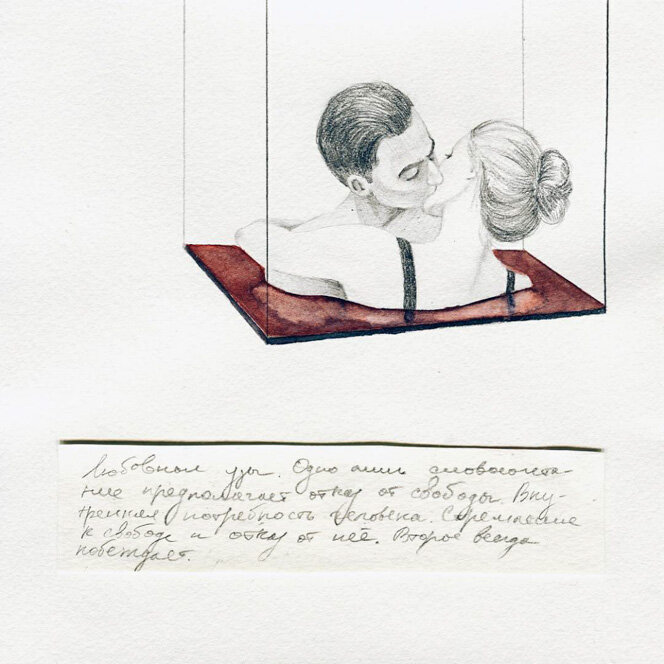 Любовные узы. Одно лишь словосочета-
ние предполагает отказ от свободы. Вну-
тренняя потребность человека. Стремление
к свободе и отказ от неё. Второе всегда
побеждает.